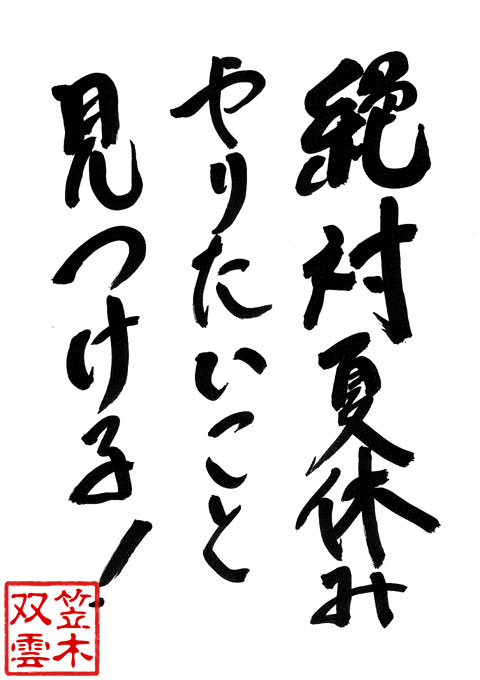 絶対夏休み
やりたいこと
見つける!
笠木
双雲